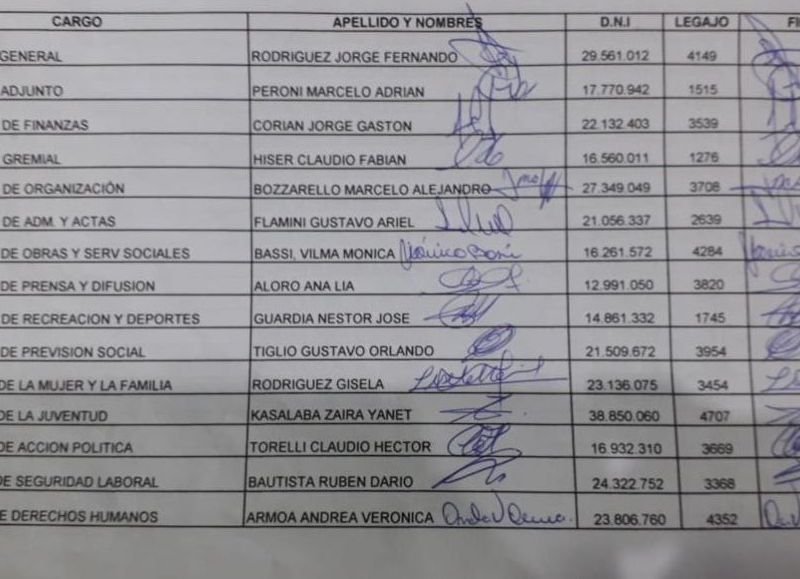 CARGO APELLIDO Y NOMBRES D.N.I LEGAJO
GENERAL RODRIGUEZ JORGE FERNANDO 29.561.012 4149
ADJUNTO PERONI MARCELO ADRIAN 17.770.942 1515
DE FINANZAS CORIAN JORGE GASTON 22.132.403 3539
GREMIAL HISER CLAUDIO FABIAN 16.560.011 1276
DE ORGANIZACIÓN BOZZARELLO MARCELO ALEJANDRO 27.349.049 3708
DE ADM. Y ACTAS FLAMINI GUSTAVO ARIEL 21.056.337 2639
DE OBRAS Y SERV SOCIALES BASSI, VILMA MONICA Mónica Bassi 16.261.572 4284
DE PRENSA Y DIFUSION ALORO ANA LIA 12.991.050 3820
DE RECREACION Y DEPORTES GUARDIA NESTOR JOSE 14.861.332 1745
DE PREVISION SOCIAL TIGLIO GUSTAVO ORLANDO 21.509.672 3954
DE LA MUJER Y LA FAMILIA RODRIGUEZ GISELA 23.136.075 3454
DE LA JUVENTUD KASALABA ZAIRA YANET 38.850.060 4707
DE ACCION POLITICA TORELLI CLAUDIO HECTOR 16.932.310 3669
DE SEGURIDAD LABORAL BAUTISTA RUBEN DARIO 24.322.752 3368
E DERECHOS HUMANOS ARMOA ANDREA VERONICA 23.806.760 4352